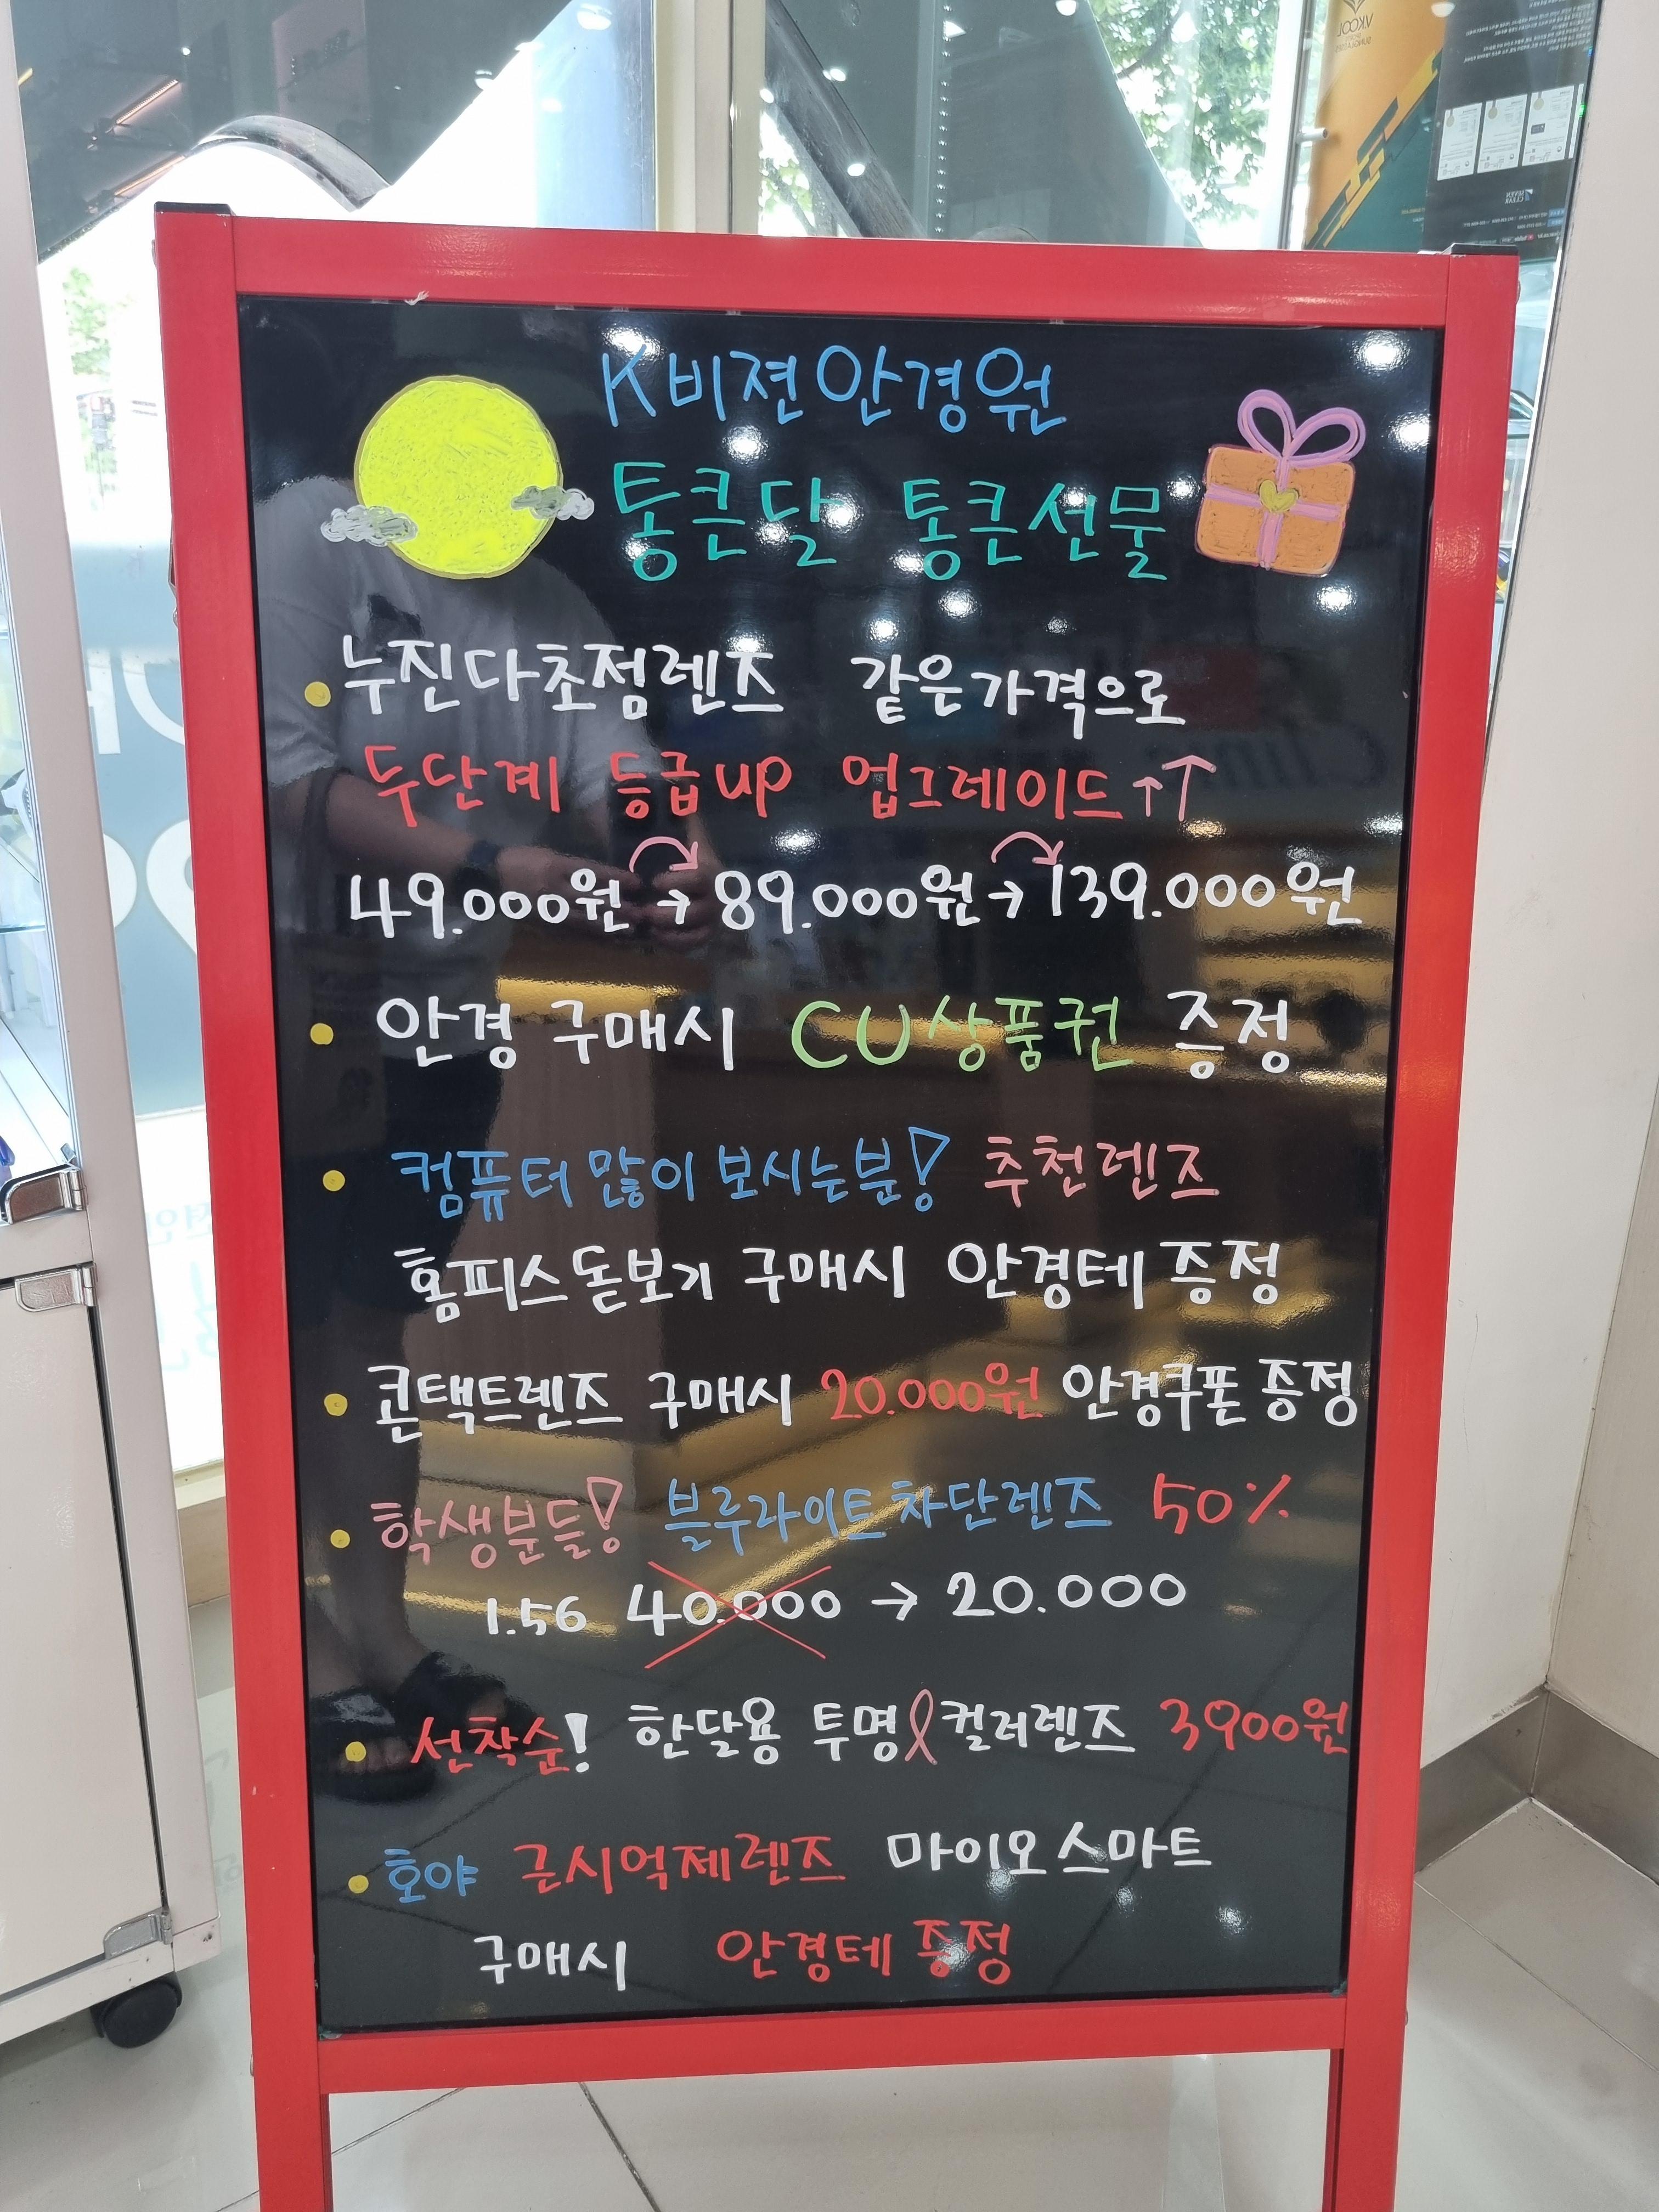 K비젼안경원
통큰달 통큰선물
누진다초점렌즈 같은가격으로
두단계 등급up 업그레이드↑↑
49.000원→89.000원→139.000원
안경 구매시 CU상품권 증정
컴퓨터 많이 보시는분! 추천렌즈
홈피스돋보기 구매시 안경테 증정
콘택트렌즈 구매시 20.000원 안경쿠폰 증정
학생분들! 블루라이트차단렌즈 50%
1.56 40.000 → 20.000
선착순! 한달용 투명 컬러렌즈 3900원
호야 근시억제렌즈 마이오스마트
구매시 안경테 증정